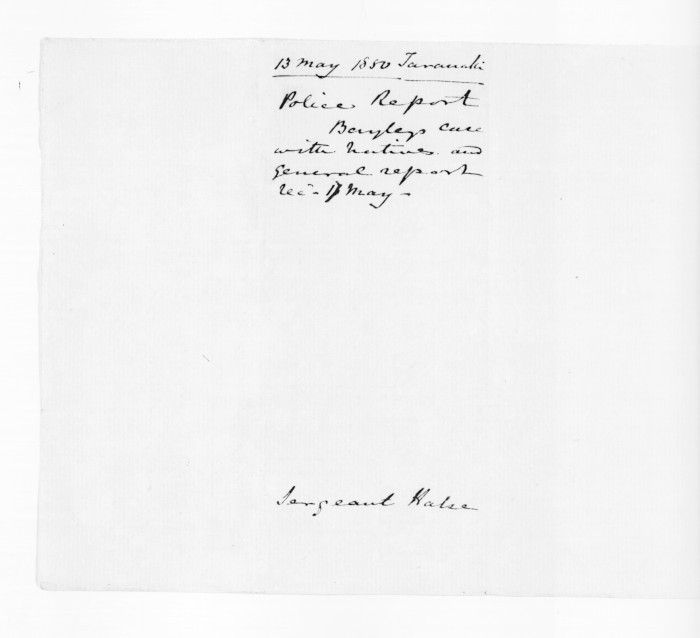 13 May 1850 Taranaki
Police Report
Bayleys case
with Natives and
general report
rec- 17 May -
Sergeant Halse